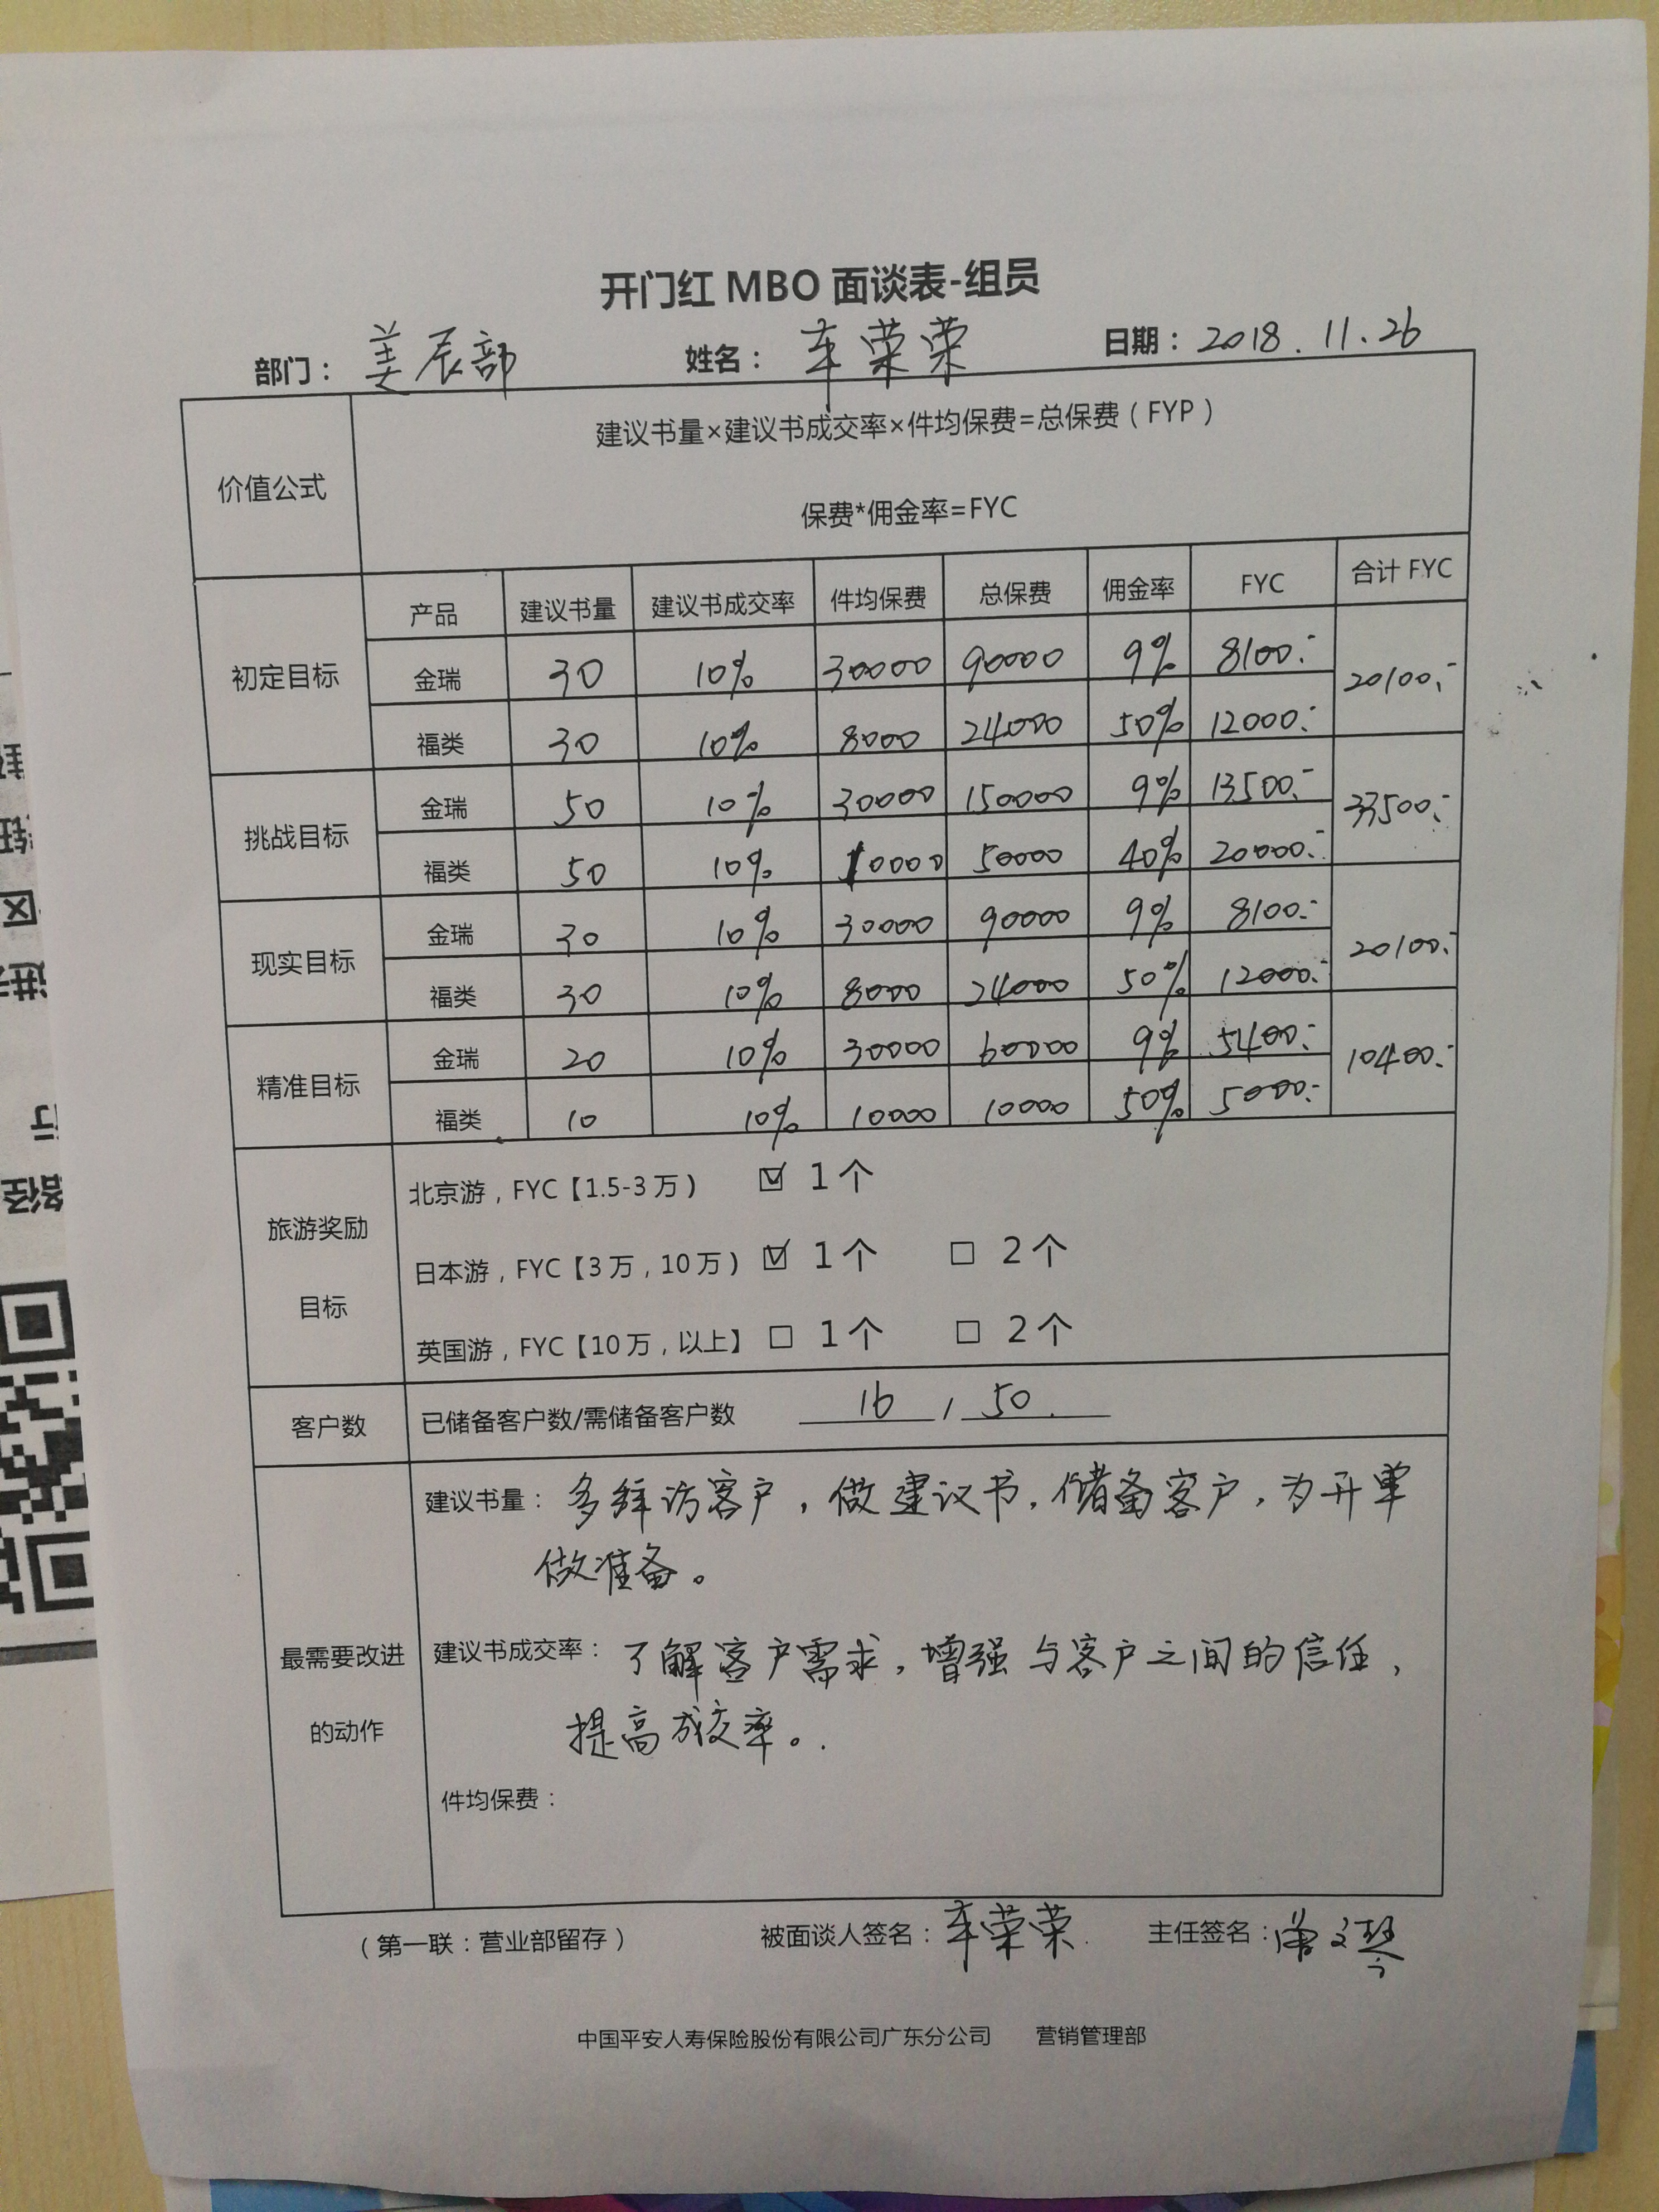 开门红 MBO 面谈表-组员
部门： 美辰部 姓名： 车荣荣 日期： 2018.11.26
价值公式
建议书量×建议书成交率×件均保费=总保费（FYP）
保费*佣金率=FYC
产品 建议书量 建议书成交率 件均保费 总保费 佣金率 FYC 合计 FYC
初定目标
金瑞 30 10% 30000 90000 9% 8100.- 20100.-
福类 30 10% 8000 24000 50% 12000.-
挑战目标
金瑞 50 10% 30000 150000 9% 13500.- 33500.-
福类 50 10% 10000 50000 40% 20000.-
现实目标
金瑞 30 10% 30000 90000 9% 8100.- 20100.-
福类 30 10% 8000 24000 50% 12000.-
精准目标
金瑞 20 10% 30000 60000 9% 5400.- 10400.-
福类 10 10% 10000 10000 50% 5000.-
旅游奖励
目标
北京游，FYC【1.5-3 万） ☑ 1 个
日本游，FYC【3 万，10 万） ☑ 1 个 □ 2 个
英国游，FYC【10 万，以上】 □ 1 个 □ 2 个
客户数 已储备客户数/需储备客户数 16 / 50
最需要改进
的动作
建议书量：多拜访客户，做建议书，储备客户，为开单
做准备。
建议书成交率：了解客户需求，增强与客户之间的信任，
提高成交率。
件均保费：
（第一联：营业部留存） 被面谈人签名：车荣荣 主任签名：
中国平安人寿保险股份有限公司广东分公司 营销管理部